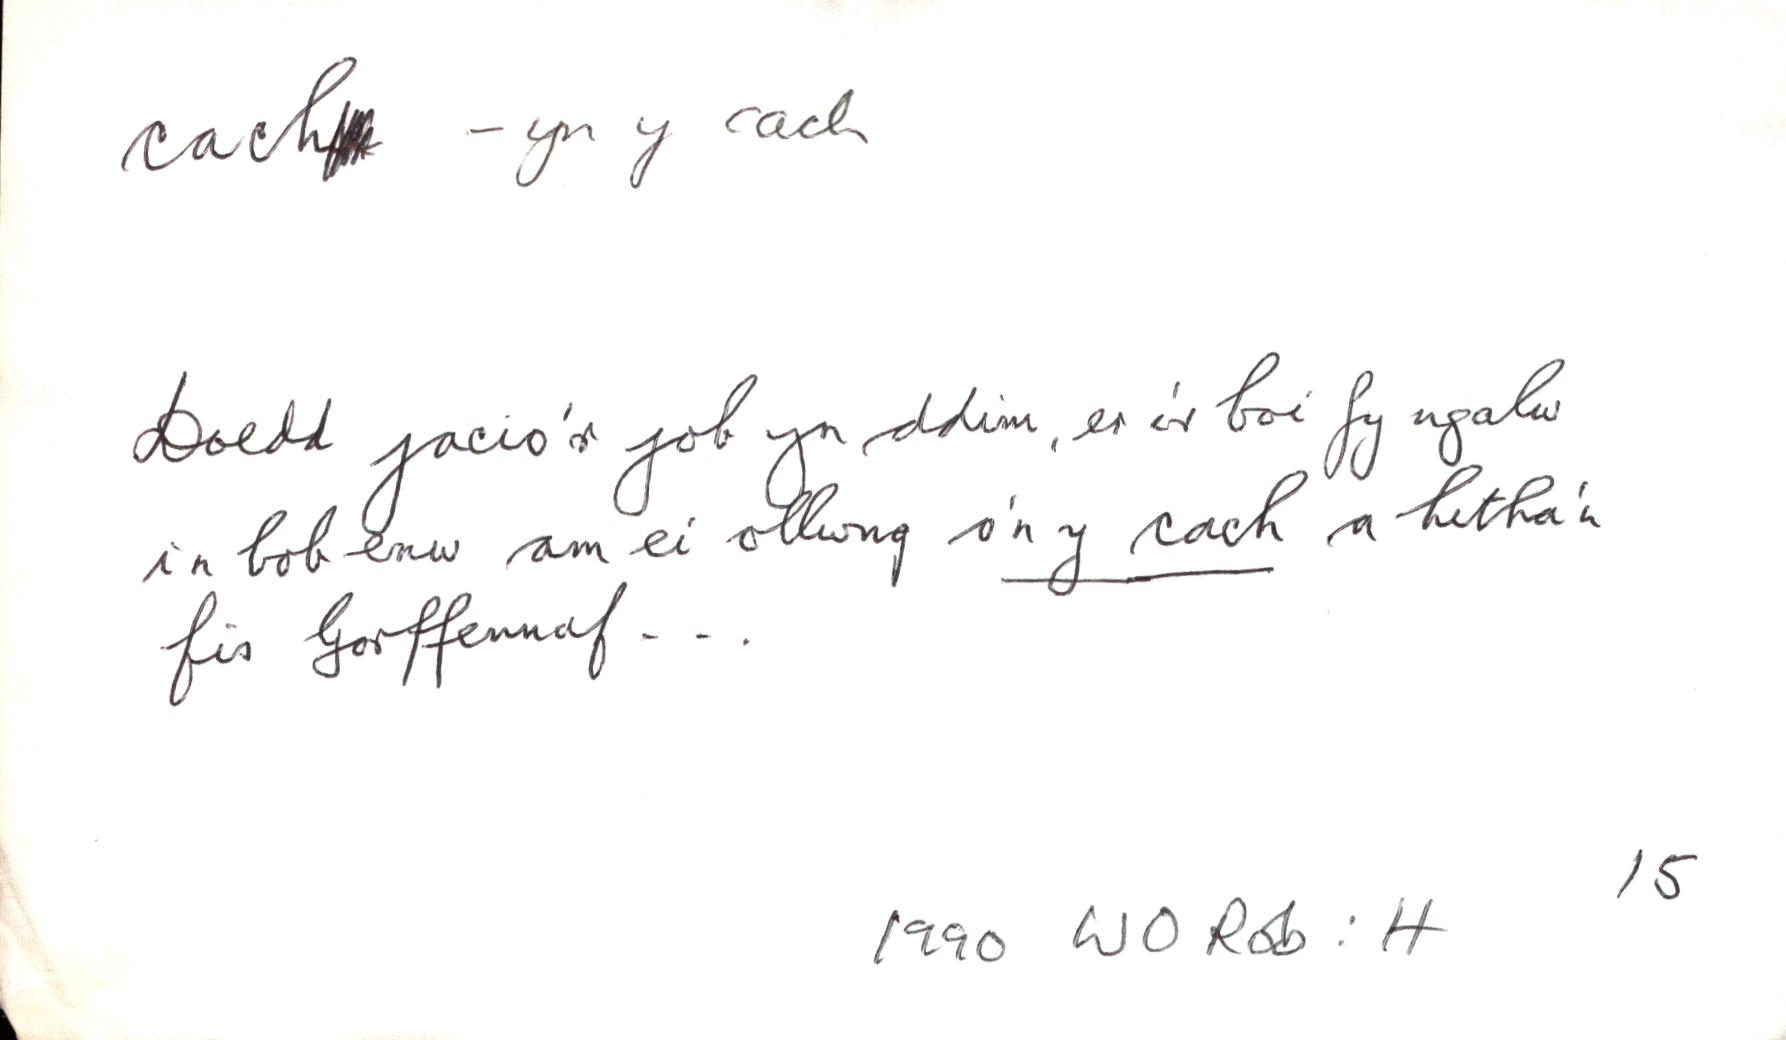 cach – yn y cach
Doedd jacio'r job yn ddim, er i'r boi fy ngalw
i'n bob enw am ei ollwng o'n y cach a hetha'n
fis Gorffennaf - - .
15
1990 WO Rob : H